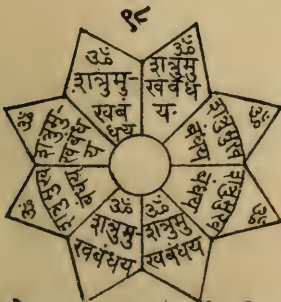 ९८
ॐ
शत्रुमु
खबं
धय
ॐ
शत्रुमु
खबंध
य
ॐ
शत्रुमुख
बंधय
ॐ
शत्रुमुख
बंधय
ॐ
शत्रुमु
खबंधय
ॐ
शत्रुमु
खबंधय
ॐ
शत्रुमुख
बंधय
ॐ
शत्रुमु-
खबंध
य